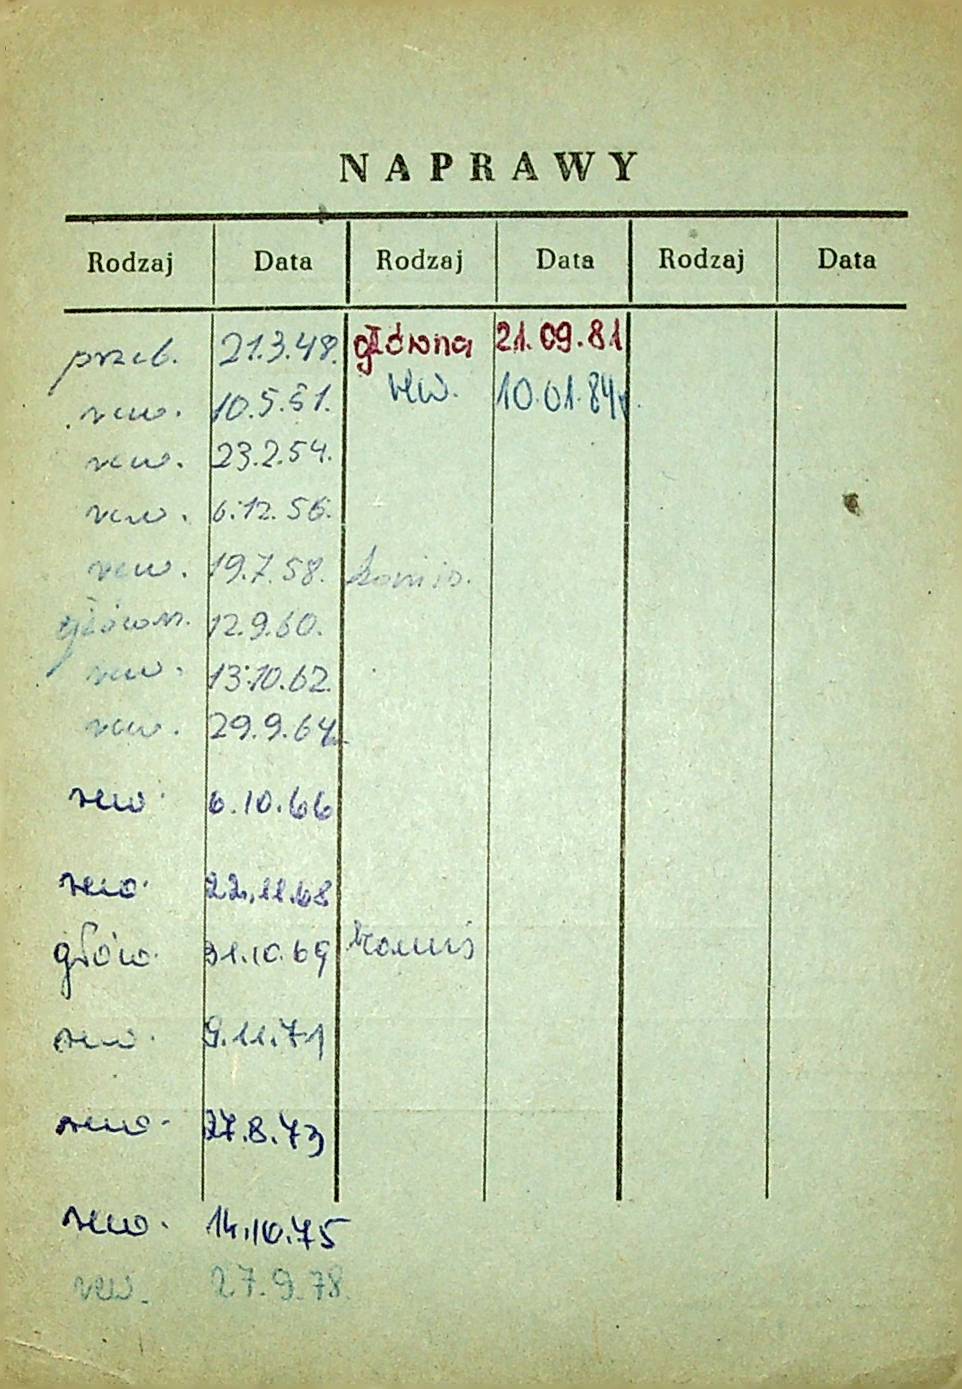 NAPRAWY
Rodzaj Data Rodzaj Data Rodzaj Data
przeb. 21.3.48. główna 21.09.81
rew. 10.5.51. rew. 10.01.84r.
rew. 23.2.54.
rew. 6.12.56.
rew. 19.7.58.
główn. 12.9.60.
rew. 13.10.62.
rew. 29.9.64
rew. 6.10.66
rew. 22.11.68
głów. 31.10.69
rew. 9.11.71
rew. 27.8.73
rew. 14.10.75
rew. 27.9.78.